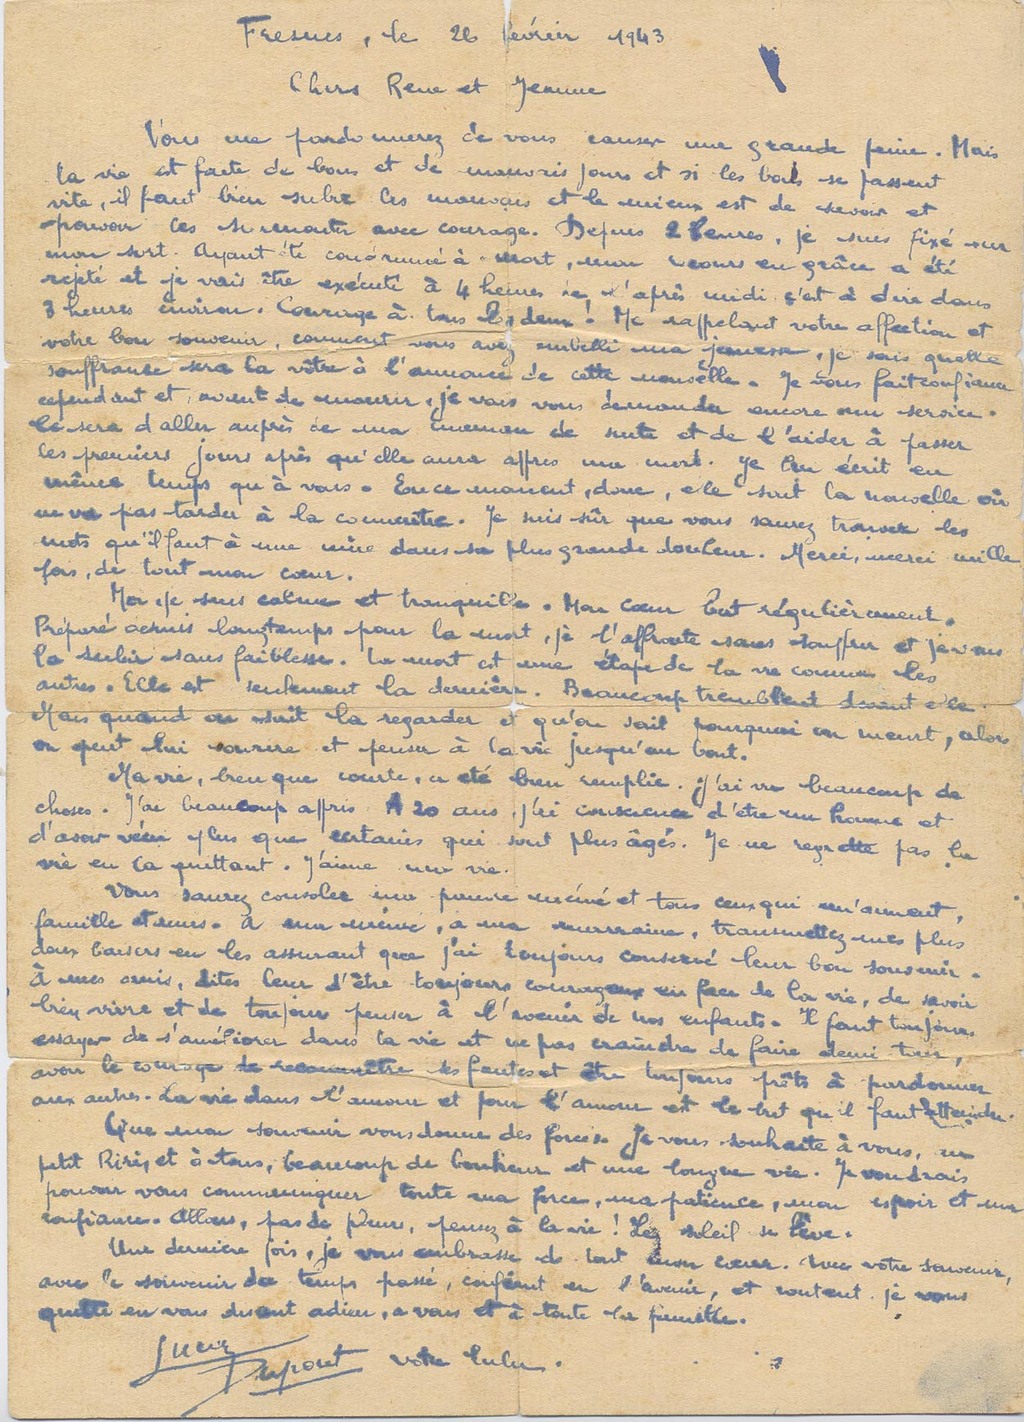 Fresnes, le 26 février 1943
Chers Rene et Jeanne
Vous me pardonnerez de vous causer une grande peine. Mais
la vie est faite de bons et de mauvais jours et si les bons se passent
vite, il faut bien subir les mauvais et le mieux est de savoir et
pouvoir les surmonter avec courage. Depuis 2 heures, je suis fixé sur
mon sort. Ayant été condamné à mort, mon recours en grâce a été
rejeté et je vais être exécuté à 4 heures de l'après midi c'est à dire dans
3 heures environ. Courage à tous les deux! Me rappelant votre affection et
votre bon souvenir, comment vous avez embelli ma jeunesse, je sais quelle
souffrance sera la vôtre à l'annonce de cette nouvelle. Je vous fait confiance
cependant et, avant de mourir, je vais vous demander encore un service.
Ce sera d'aller auprès de ma maman de suite et de l'aider à passer
les premiers jours après qu'elle aura appris ma mort. Je lui écrit en
même temps qu'à vous. En ce moment, donc, elle sait la nouvelle où
ne va pas tarder à la connaître. Je suis sûr que vous saurez trouver les
mots qu'il faut à une mère dans sa plus grande douleur. Merci, merci mille
fois, de tout mon cœur.
Moi je suis calme et tranquille. Mon cœur bat régulièrement.
Préparé depuis longtemps pour la mort, je l'affronte sans souffrir et je vais
la subir sans faiblesse. La mort est une étape de la vie comme les
autres. Elle est seulement la dernière. Beaucoup tremblent devant elle.
Mais quand on sait la regarder et qu'on sait pourquoi on meurt, alors
on peut lui sourire et penser à la vie jusqu'au bout.
Ma vie, bien que courte, a été bien remplie. J'ai vu beaucoup de
choses. J'ai beaucoup appris A 20 ans j'ai conscience d'être un homme et
d'avoir vécu plus que certains qui sont plus âgés. Je ne regrette pas la
vie en la quittant. J'aime ma vie.
Vous saurez consoler ma pauvre mémé et tous ceux qui m'aiment,
famille et amis. A ma mémé, a ma marraine, transmettez mes plus
doux baisers en les assurant que j'ai toujours conservé leur bon souvenir.
À mes amis, dites leur d'être toujours courageux en face de la vie, de savoir
bien vivre et de toujours penser à l'avenir de nos enfants. Il faut toujours
essayer de s'améliorer dans la vie et ne pas craindre de faire demi tour,
avoir le courage de reconnaître ses fautes et être toujours prêts à pardonner
aux autres. La vie dans l'amour et pour l'amour est le but qu'il faut atteindre.
Que mon souvenir vous donne des forces. Je vous souhaite à vous, au
petit Riri, et à tous, beaucoup de bonheur et une longue vie. Je voudrais
pouvoir vous communiquer toute ma force, ma patience, mon espoir et ma
confiance. Allons, pas de pleurs, pensez à la vie! Le soleil se lève.
Une dernière fois, je vous embrasse de tout mon cœur. Avec votre souvenir,
avec le souvenir du temps passé, confiant en l'avenir, et content je vous
quitte en vous disant adieu, a vous et à toute la famille.
Lucien
Dupont votre lulu.